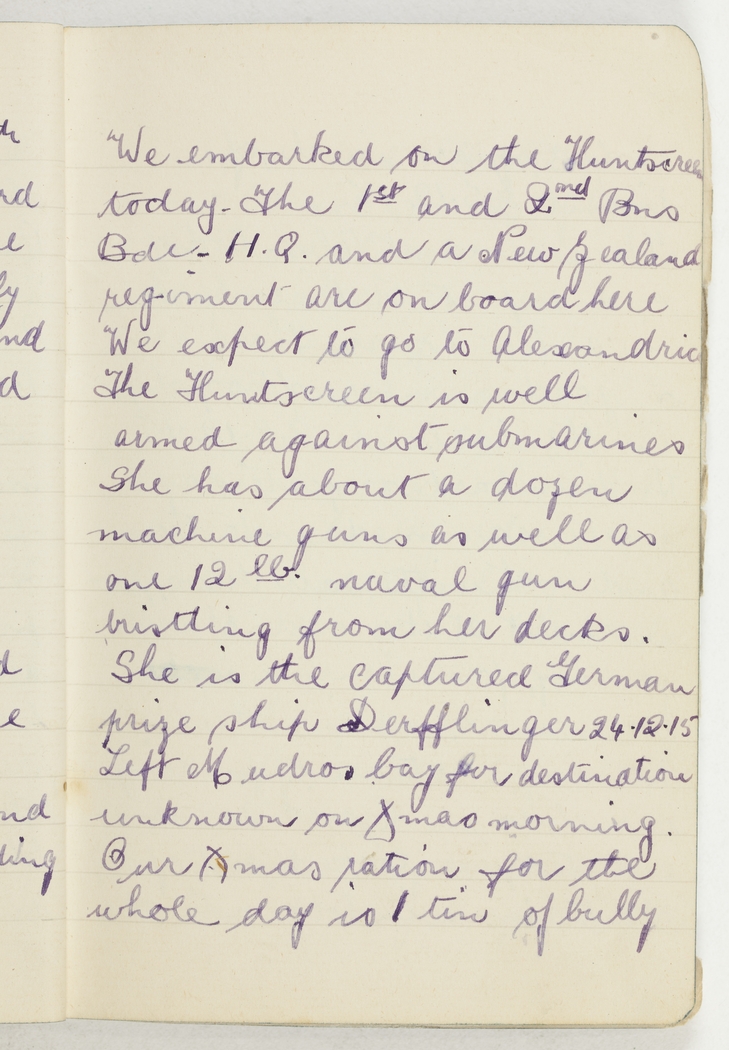 We embarked on the Huntscreen
today. The 1st and 2nd Bns
Bde - H.Q. and a New Zealand
regiment are on board here
We expect to go to Alexandria
The Huntscreen is well
armed against submarines
She has about a dozen
machine guns as well as
one 12 lb. naval gun
bristling from her decks.
She is the captured German
prize ship Derfflinger 24.12.15
Left Mudros bay for destination
unknown on Xmas morning.
Our Xmas ration for the
whole day is 1 tin of bully